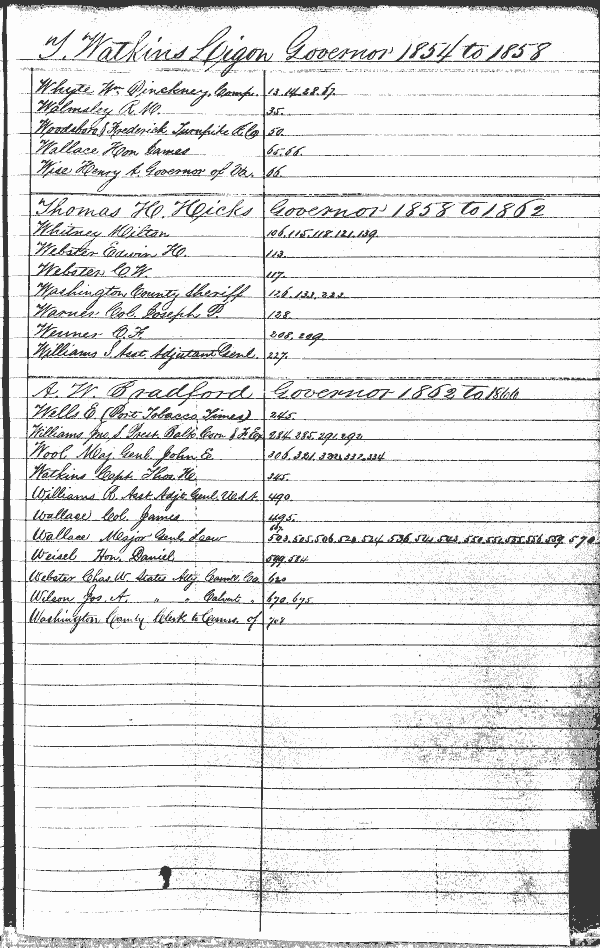 T. Watkins Ligon Governor 1854 to 1858
Whyte Wm. Pinckney, Comp. 13.14.28.87.
Walmsley R. M. 35.
Woodsboro & Frederick Turnpike R. Co 50.
Wallace Hon James 65.66.
Wise Henry A. Governor of Va. 66.
Thomas H. Hicks Governor 1858 to 1862
Whitney Milton 106.115.118.121.139.
Webster Edwin H. 113.
Webster C. W. 117.
Washington County Sheriff 126.133.223.
Warner Col. Joseph P. 128.
Wenner C. F. 208, 209.
Williams S Asst. Adjutant Genl. 227.
A. W. Bradford Governor 1862 to 1866
Wells E. (Port Tobacco Times) 245.
Williams Jno. S. Prest. Balto 284.285.291.292
Wool Maj. Genl. John E. 306.321. 334
Watkins Capt. Thos. H. 345.
Williams R. Asst. Adjt. Genl. U.S.A. 490.
Wallace Col. James 495.
Wallace Major Genl. Lew 503.505.506. 570
Weisel Hon. Daniel 509.584.
Webster Chas. W. States Atty. Carroll Co. 620
Wilson Jos. A. " " Calvert " 670.675.
Washington County Clerk to Comrs. of 708